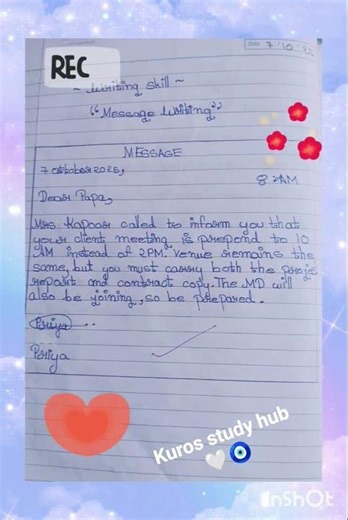 REC
Date 7/10/25
~ Writing skill ~
"Message Writing"
MESSAGE
7 oktober 2025,
8:2AM
Dear Papa,
Mrs. Kapoor called to inform you that
your client meeting is prepond to 10
AM instead of 2PM. Venue remains the
same, but you must carry both the projct
report and contract copy. The MD will
also be joining, so be prepared.
Priya
Priya
Kuros study hub
InShOt